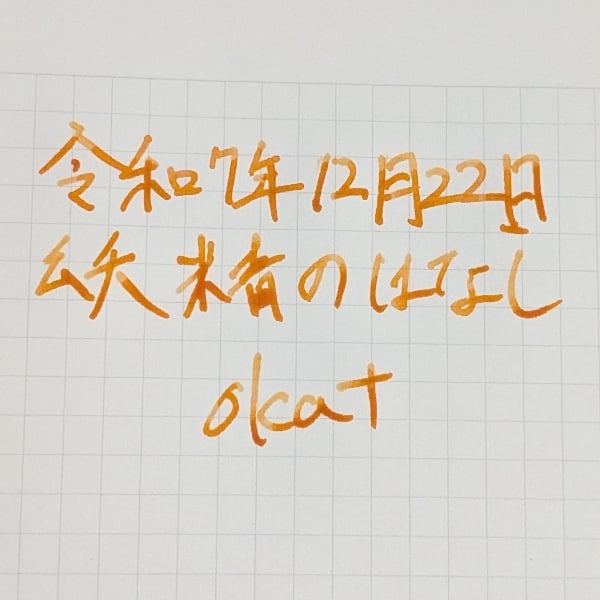 令和7年12月22日
妖精のはなし
okat